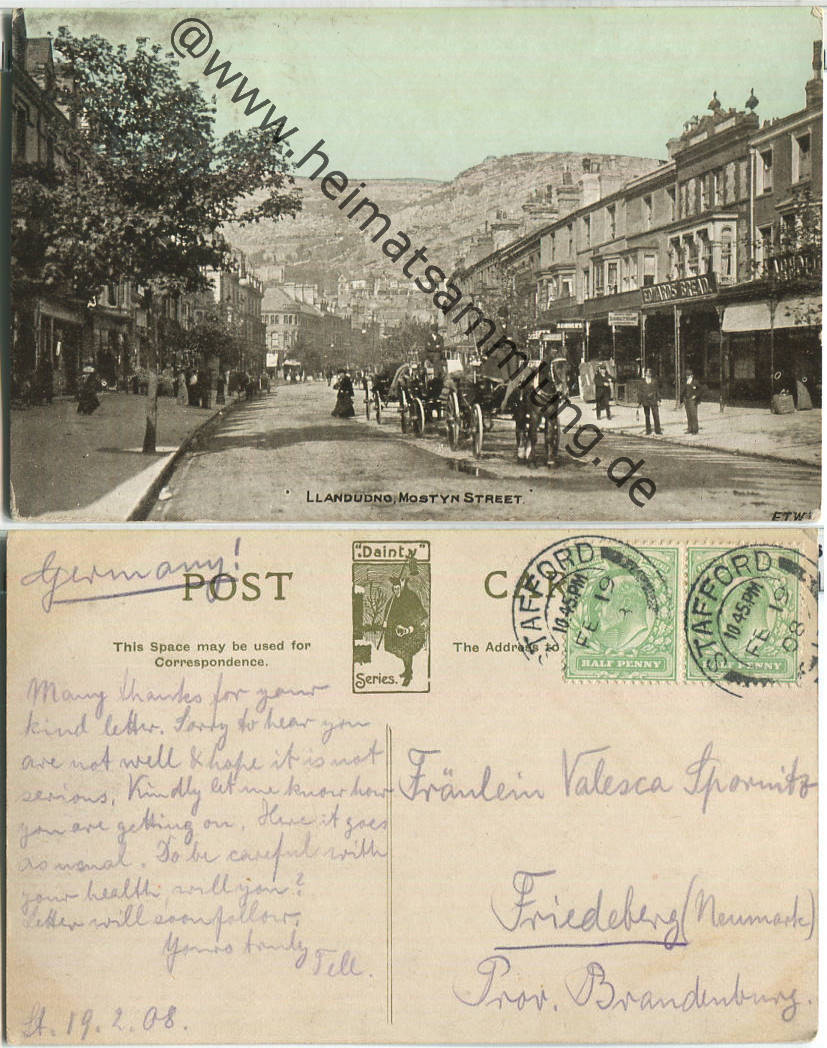 @www.heimatsammlung.de
EDWARDS BREAD
LLANDUDNO, MOSTYN STREET.
E.T.W.
Germany!
POST CARD
"Dainty"
Series.
This Space may be used for
Correspondence.
The Address to
STAFFORD
10.45 PM
FE 19
HALF PENNY
STAFFORD
10.45 PM
FE 19
08
HALF PENNY
Many thanks for your
kind letter. Sorry to hear you
are not well & hope it is not
serious. Kindly let me know how
you are getting on. Here it goes
as usual. Do be careful with
your health, will you?
Letter will soon follow.
Yours truly
Tell.
St. 19.2.08.
Fräulein Valesca Spornitz
Friedeberg (Neumark)
Prov. Brandenburg.